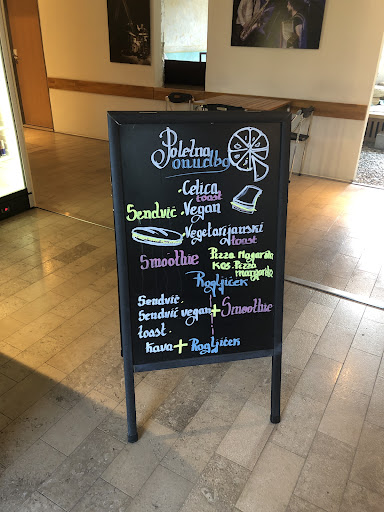 Poletna
onudba
• Celica
toast
Sendvič • Vegan
• Vegetarijanski
toast
Smoothie Pizza Magarita
Kos. Pizza
margarita
Rogljiček
Sendvič •
Sendvič vegan + Smoothie
toast •
Kava + Rogljiček